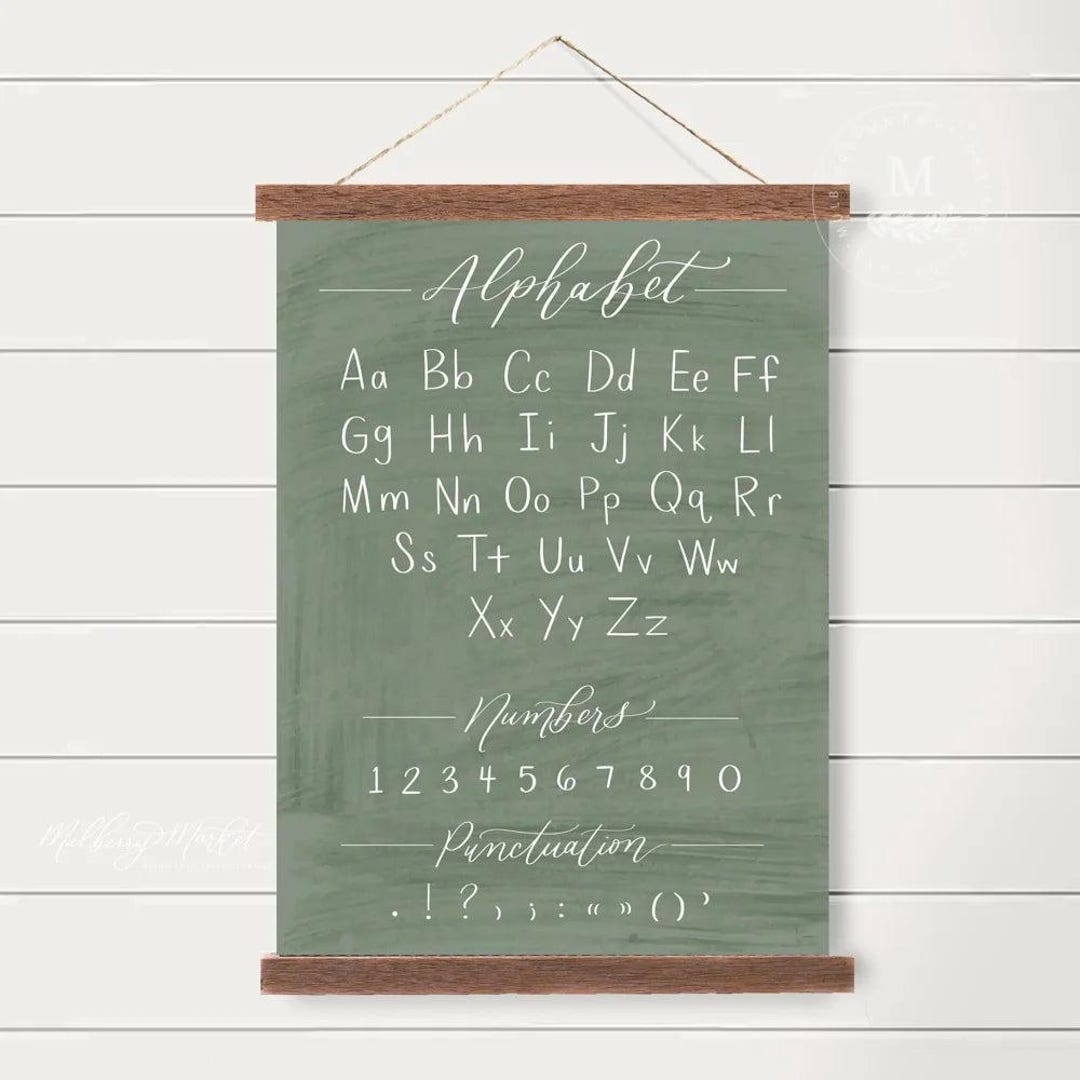 M
Alphabet
Aa Bb Cc Dd Ee Ff
Gg Hh Ii Jj Kk Ll
Mm Nn Oo Pp Qq Rr
Ss Tt Uu Vv Ww
Xx Yy Zz
Numbers
1 2 3 4 5 6 7 8 9 0
Mulberry Market
Punctuation
. ! ? , ; : “ ” ( ) ’